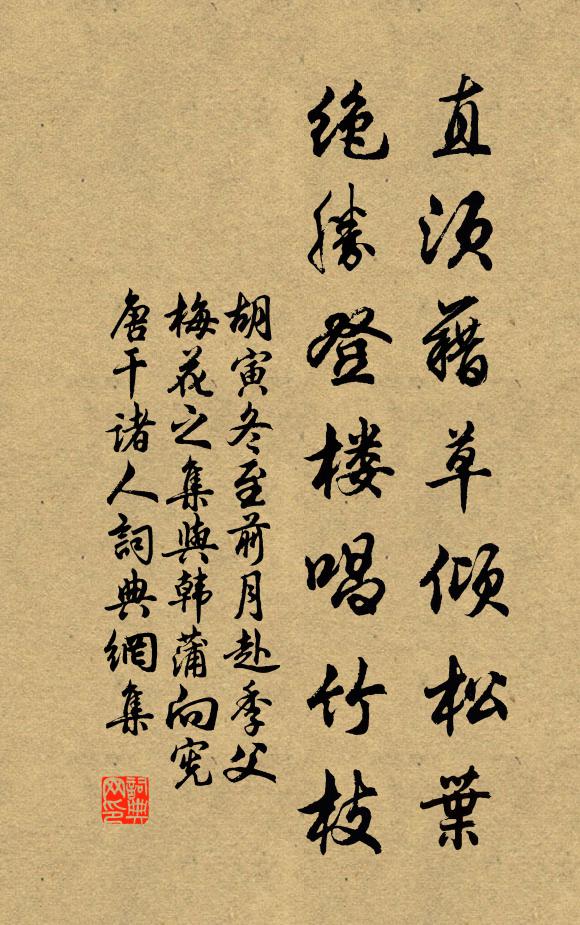 直须藉草倾松葉
绝勝登楼唱竹枝
胡寅冬至前月赴季父
梅花之集與韩蒲向宪
唐干诸人詞典網集
詞典网印